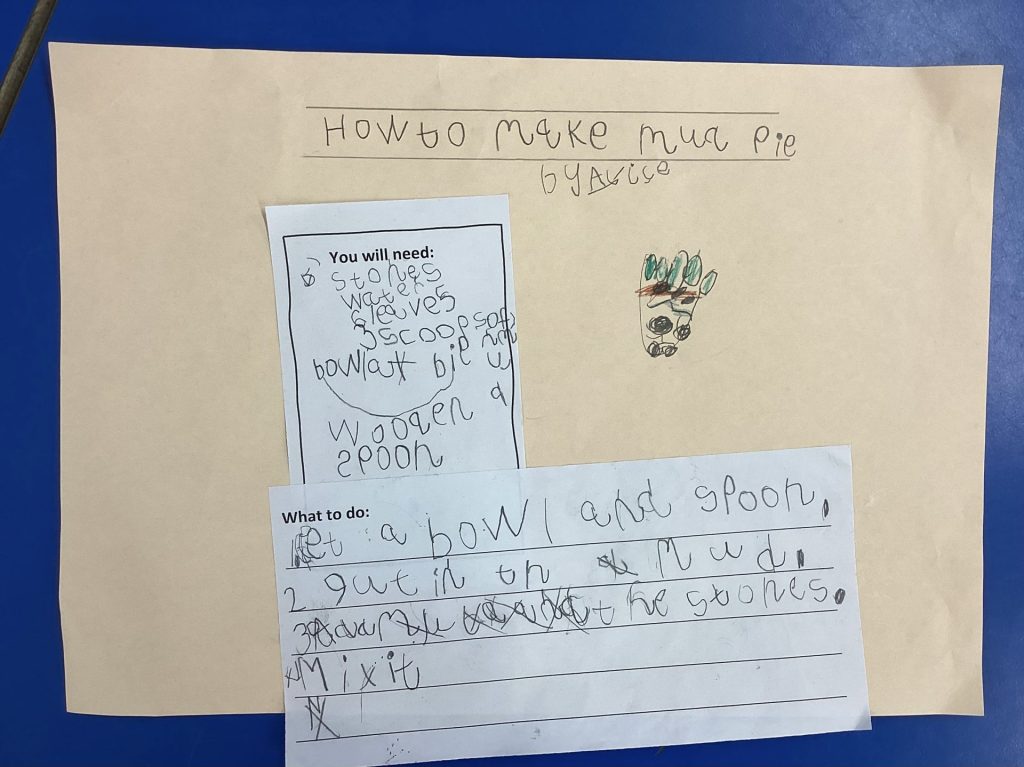 HOW to make mud Pie
by
You will need:
6 stones
water
6 leaves
3 scoops of
bowl pie mu
d
wooden
spoon
What to do:
1 Get a bowl and spoon.
2 put in th mud.
3 the stones.
4 Mix it